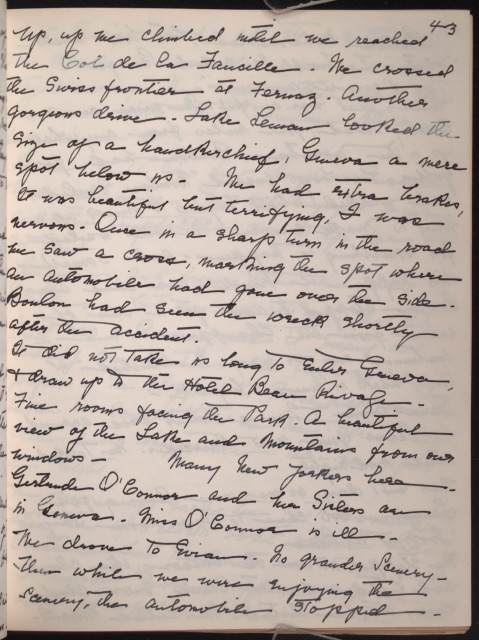 43
Up, up we climbed until we reached
the Col de la Faucille. We crossed
the Swiss frontier at Fernay. Another
gorgeous drive. Lake Leman looked the
size of a handkerchief, Geneva a mere
spot below us. We had extra brakes,
It was beautiful but terrifying, I was
nervous. Once in a sharp turn in the road
we saw a cross, marking the spot where
an automobile had gone over the side.
Boulon had seen the wreck shortly
after the accident.
It did not take us long to enter Geneva,
& draw up to the Hotel Beau Rivage.
Fine rooms facing the Park. A beautiful
view of the Lake and Mountains from our
windows - Many New Yorkers here.
Gertrude O'Connor and her Sisters are
in Geneva. Miss O'Connor is ill.
We drove to Evian. No grander Scenery -
Then while we were enjoying the
Scenery, the automobile stopped.